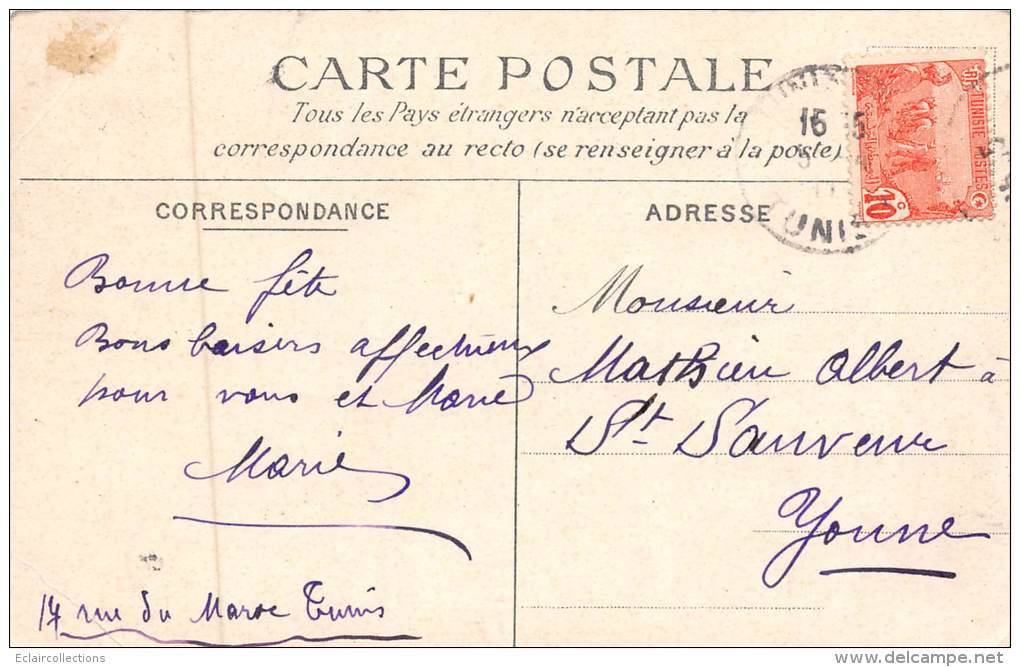 CARTE POSTALE
Tous les Pays étrangers n'acceptant pas la
correspondance au recto (se renseigner à la poste)
CORRESPONDANCE
ADRESSE
TUNISIE POSTES
10 c
16
TUNIS
Bonne fête
Bons baisers affectueux
pour vous et Marie
Marie
17 rue du Maroc Tunis
Monsieur
Mathieu Albert à
St Sauveur
Yonne
Eclaircollections
delcampe.net